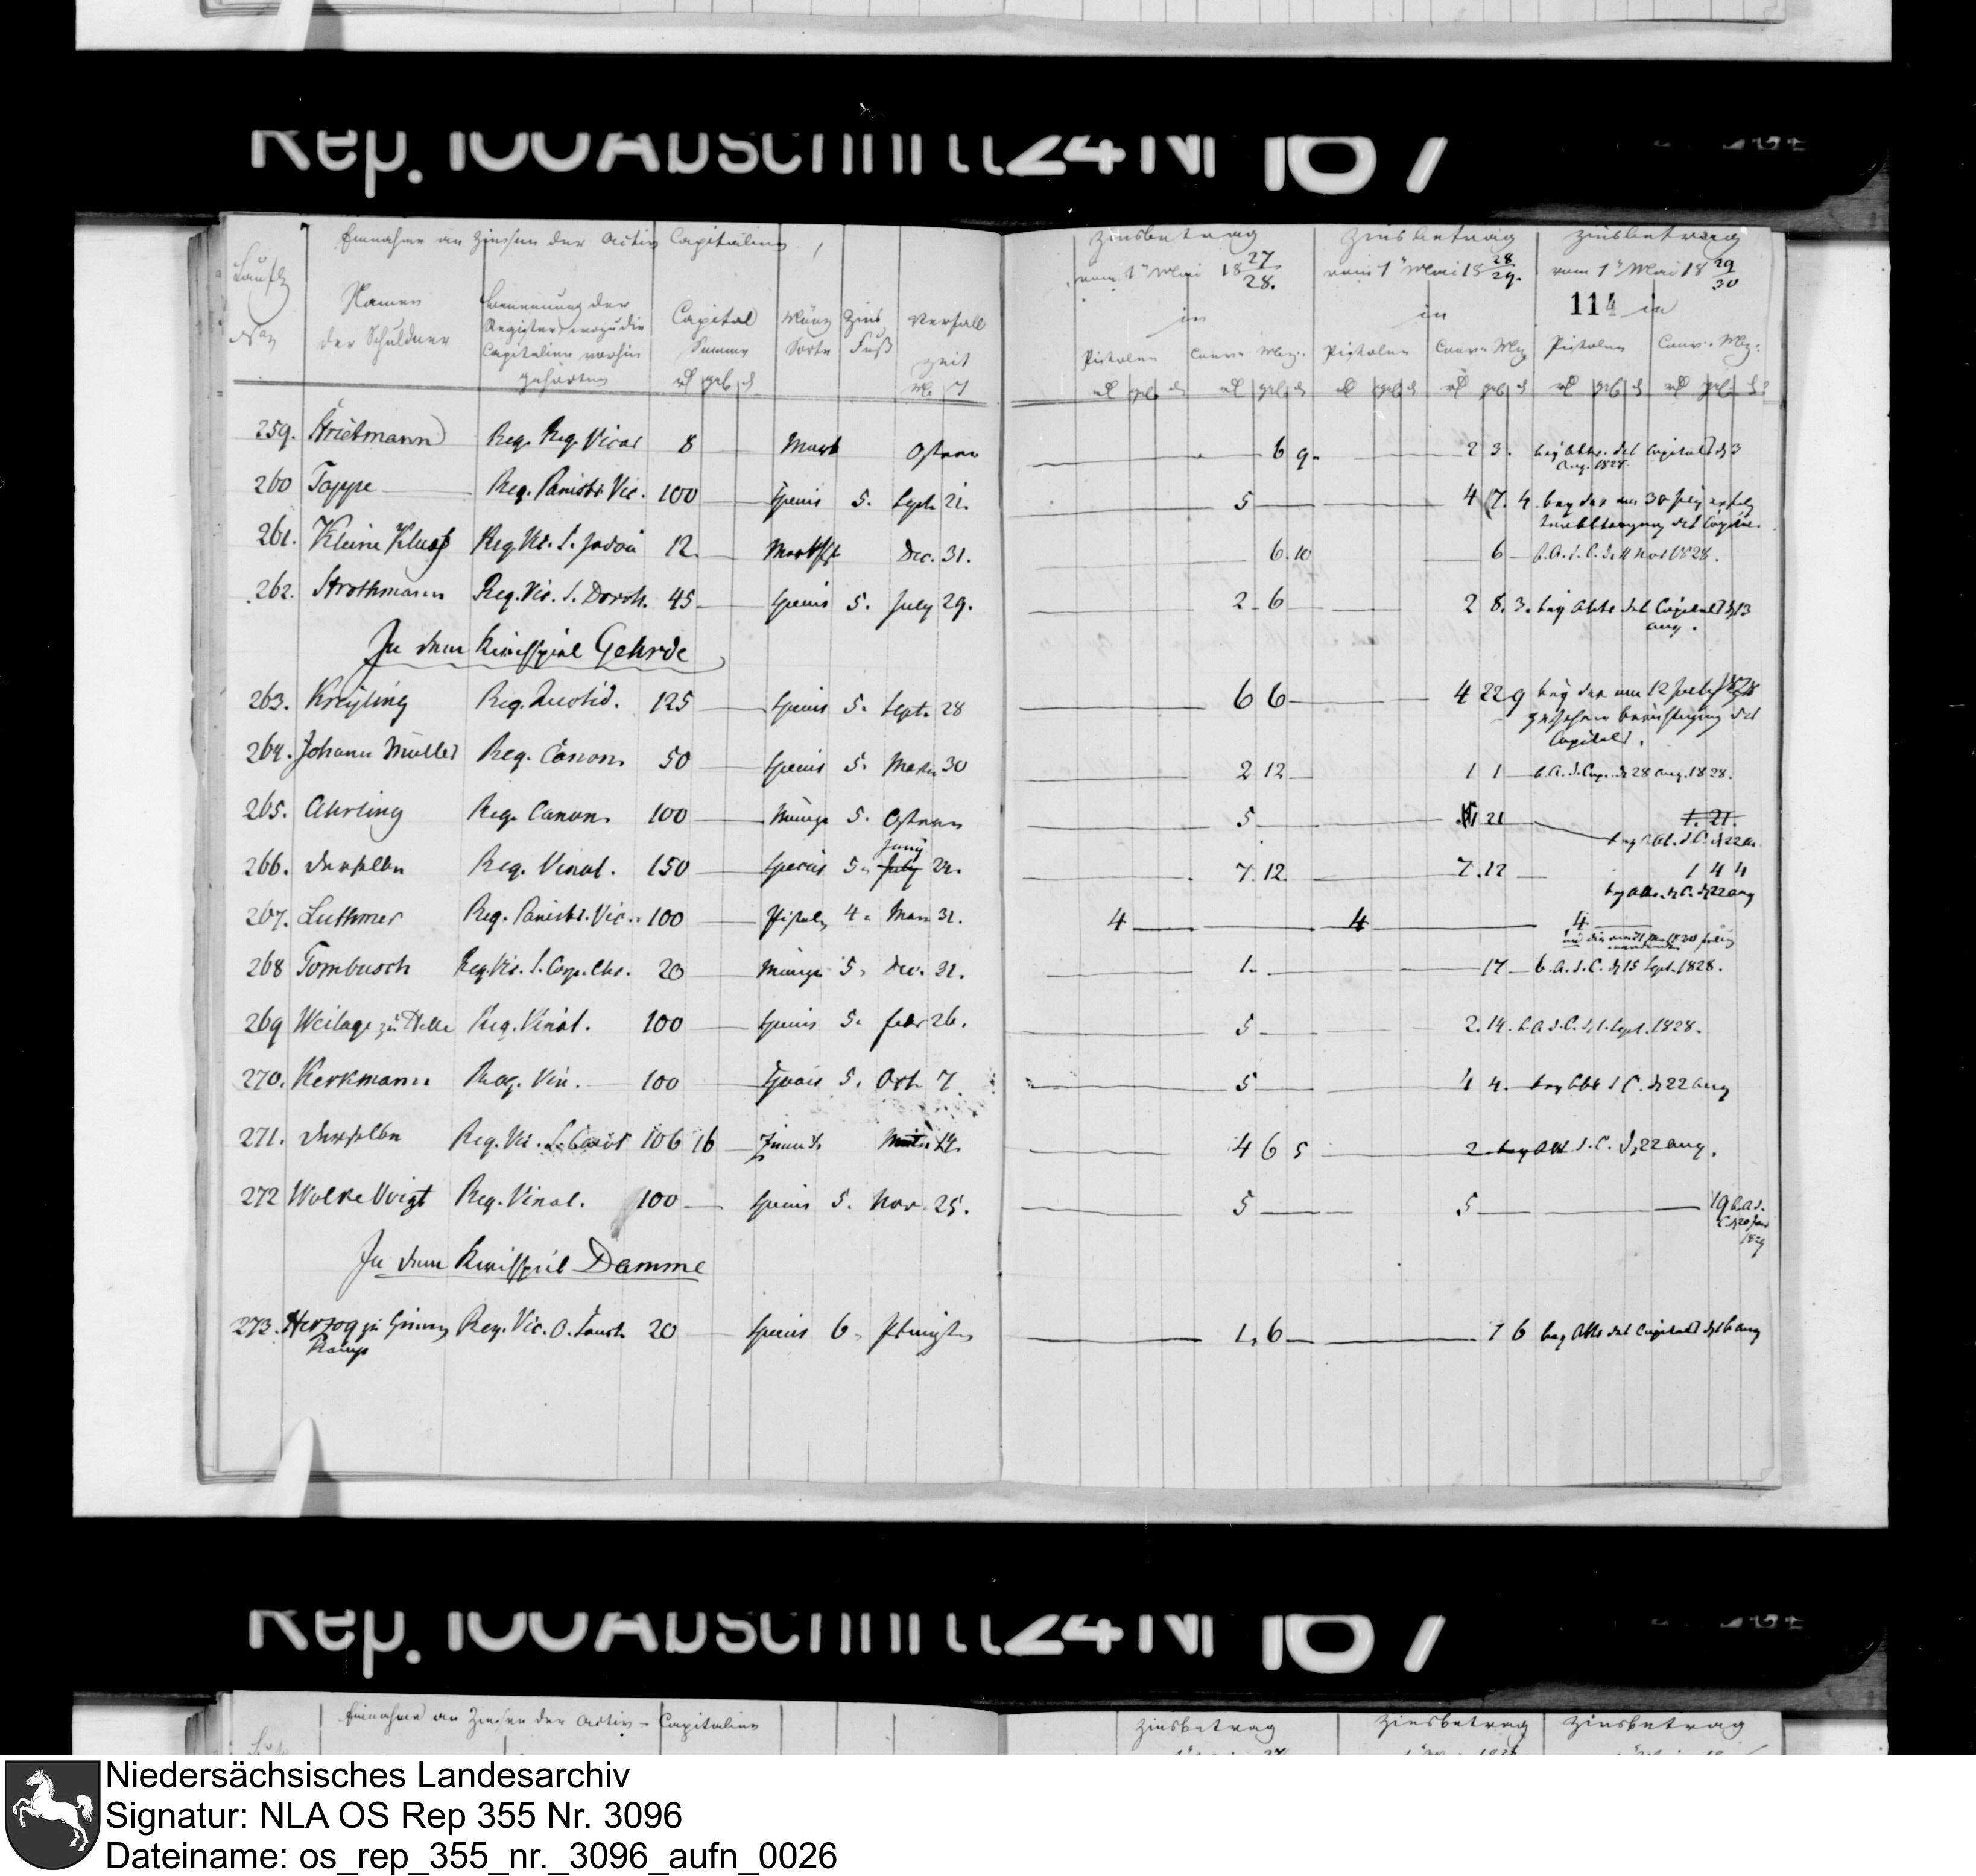 Rep. 100 Abschnitt 24 Nr 167
Einnahme an Zinsen der Activ Capitalien
Laufde
Namen
der Schuldner
Benennung der
Register, wozu die
Capitalien vorhin
gehörten
Capital
Summe
Münz
Sorte
Zins
Fuß
Verfall
Zeit
Zinsbetrag
vom 1n Mai 18 27/28.
in
Pistolen Conv. Mz.
Zinsbetrag
vom 1n Mai 18 28/29.
in
Pistolen Conv. Mz
Zinsbetrag
vom 1n Mai 18 29/30
114 in
Pistolen Conv. Mz.
259. Strietmann Reg. Reg. Vicar 8 Mark Ostern 6 9 2 3. bey Abtr. des Capitals d 3
Aug. 1828.
260 Toppe Reg. Panistr. Vic. 100 Species 5. Sept. 21. 5 4 7. 4. bey der am 30 July erfolg
des Capitals.
261. Kleine Reg. Vic. S. 12. Dec. 31. 6.10 6 b. A. d. C. d. 11 Nov 1828.
262. Strothmann Reg. Vic. S. Doroth. 45 Species 5. July 29. 2 6 2 8. 3. bey Abtr. des Capitals d 13
Aug.
In dem Kirchspiel Gehrde
263. Kreyling Reg. Quotid. 125 Species 5. Sept. 28 6 6 4 22 9 bey der am 12 July 1828
geschehenen des
Capitals.
264. Johann Müller Reg. Canon. 50 Species 5. 30 2 12 1 1 b. A. d. Cap. d. 28 Aug. 1828.
265. Ahrling Reg. Canon. 100 Münze 5. Ostern 5 21 1. 21.
bey Abl. d C. d 22 A.
266. derselbe Reg. Vicat. 150 Species 5. Juny July 7. 12. 7. 12 1 4 4
bey Abl. d. C. d. 22 Aug
267. Luthmer Reg. Panistr. Vic. 100 Pistolen 4. 31. 4 4 4
268 Tombusch Reg. Vic. S. Corp. Chr. 20 Münze 5. Dec. 31. 1. 17 b. A. d. C. d 15 Sept. 1828.
269 Weilage zu Helle Reg. Vicat. 100 Species 5. Febr 26. 5 2. 14. b. A d. C. d. 1. Sept. 1828.
270. Kerkmann Reg. Vic. 100 Species 5. Oct. 7. 5 4. bey Abtr d C. d 22 Aug
271. derselbe Reg. Vic. 106 16 4 6 5 2 bey Abl d. C. d. 22 Aug.
272 Wolke Voigt Reg. Vicat. 100 Species 5. Nov. 25. 5 5 19 b. A. d.
C. d 20
1829
In dem Kirchspiel Damme
273. Herzog zu Reg. Vic. 20 Species 6. Pfingsten 1. 6 1 6 bey Abtr des Capitals d 16 Aug
Kamp
Rep. 100 Abschnitt 24 Nr 167
Einnahme an Zinsen der Activ- Capitalien
Zinsbetrag Zinsbetrag Zinsbetrag
Niedersächsisches Landesarchiv
Signatur: NLA OS Rep 355 Nr. 3096
Dateiname: os_rep_355_nr._3096_aufn_0026